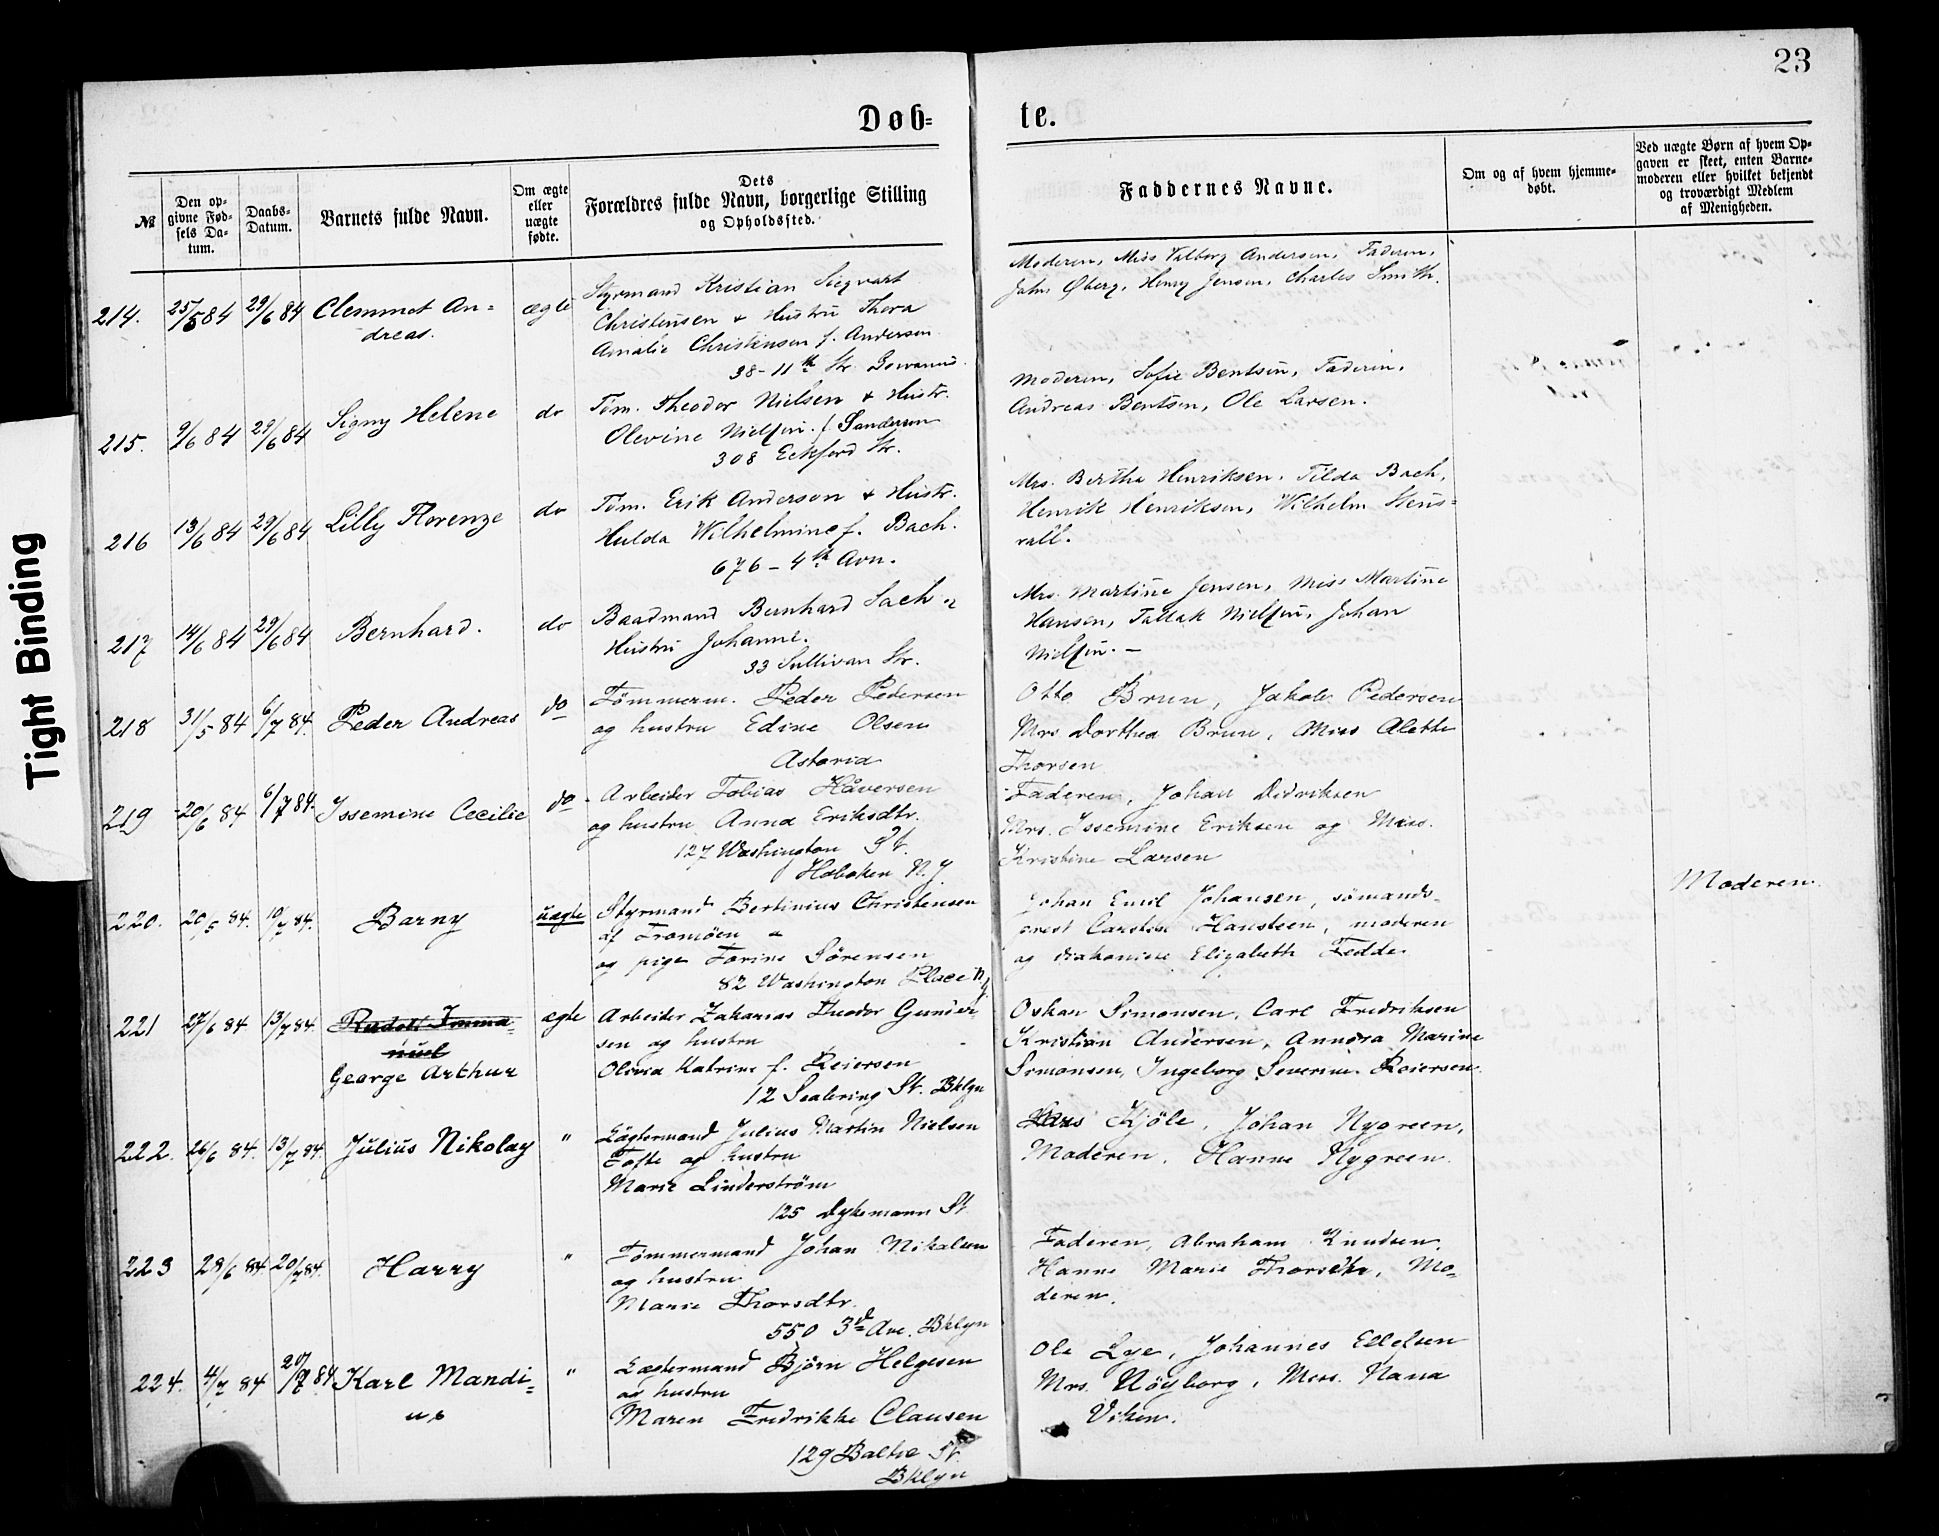 23
Døb=
te.
№
Den op-
givne Fød-
sels Da-
tum.
Daabs-
Datum.
Barnets fulde Navn.
Om ægte
eller
uægte
fødte.
Dets
Forældres fulde Navn, borgerlige Stilling
og Opholdssted.
Faddernes Navne.
Om og af hvem hjemme-
døbt.
Ved uægte Børn af hvem Op-
gaven er skeet, enten Barne-
moderen eller hvilket bekjendt
og troværdigt Medlem
af Menigheden.
214.
25/5 84
29/6 84
Clemmet An=
dreas.
ægte
Styrmand Kristian Sigvart
Christensen & Hustru Thora
Amalie Christensen f. Andersen
38-11th Str.
Moderen, Miss Valborg Andersen, Faderen,
John Øberg, Henry Jensen, Charles Smith.
215.
9/6 84
29/6 84
Signy Helene
do
Tøm. Theodor Nielsen & Hustr.
Olevine Nielsen f. Sandersen
308 Eckford Str.
Moderen, Sofie Bentsen, Faderen,
Andreas Bentsen, Ole Larsen.
216
13/6 84
29/6 84
Lilly Florenze
do
Tøm. Erik Anderson & Hustr.
Hulda Wilhelmine f. Bach.
676-4th Avn.
Mrs. Bertha Henriksen, Tilda Bach,
Henrik Henriksen, Wilhelm Stens=
rall.
217
14/6 84
29/6 84
Bernhard.
do
Baadmand Bernhard Sach &
Hustru Johanne.
33 Sullivan Str.
Mrs. Martine Jensen, Miss Martine
Hansen, Tallak Nielsen, Johan
Nielsen. —
218
31/5 84
6/7 84.
Peder Andreas
do
Tømmerm. Peder Pedersen
og hustru Edine Olsen
Astoria
Otto Brun, Jakob Pedersen
Mrs Dorthea Brun, Miss Alette
Thorsen
219
20/6 84
6/7 84.
Issemine Cecilie
do
Arbeider Tobias Håversen
og hustru Anna Eriksdtr.
127 Washington St.
Hoboken N.J.
Faderen, Johan Didriksen
Mrs. Issemine Eriksen og Miss.
Kristine Larsen
220.
20/5 84.
10/7 84.
Barny
uægte
Styrmand Bertinius Christensen
af Tromöen
og pige Torine Sörensen
82 Washington Place Ny
Johan Emil Johansen, sömands-
prest Carsten Hansteen, moderen
og diakonisse Elizabeth Fedde.
Moderen.
221
27/6 84
13/7 84.
Rudolf Imma-
nuel
George Arthur
ægte
Arbeider Zakarias Theodor Gunder-
sen og hustru
Olivia Katrine f. Reiersen
12 Seabring St. Bklyn
Oskar Simonsen, Carl Fredriksen
Kristian Andersen, Annora Marine
Simonsen, Ingeborg Severine Reiersen.
222.
26/6 84.
13/7 84.
Julius Nikolay
"
Lægtermand Julius Martin Nielsen
Tofte og hustru
Marie Linderström
125 Dykemann St
Lars Kjöle, Johan Nygreen,
Moderen, Hanne Nygreen.
223
28/6 84.
20/7 84.
Harry
"
Tømmermand Johan Nikalsen
og hustru
Marie Thorsdtr.
550 3d Ave. Bklyn
Faderen, Abraham Knudsen,
Hanne Marie, Mo-
deren.
224.
4/7 84
20/7 84
Karl Mandi=
us
"
Lægtermand Björn Helgesen
og hustru
Maren Fredrikke Clausen
129 Baltic St.
Bklyn
Ole Lye, Johannes Ellefsen
Mrs. Nöyborg, Miss. Nana
Viken.
Tight Binding